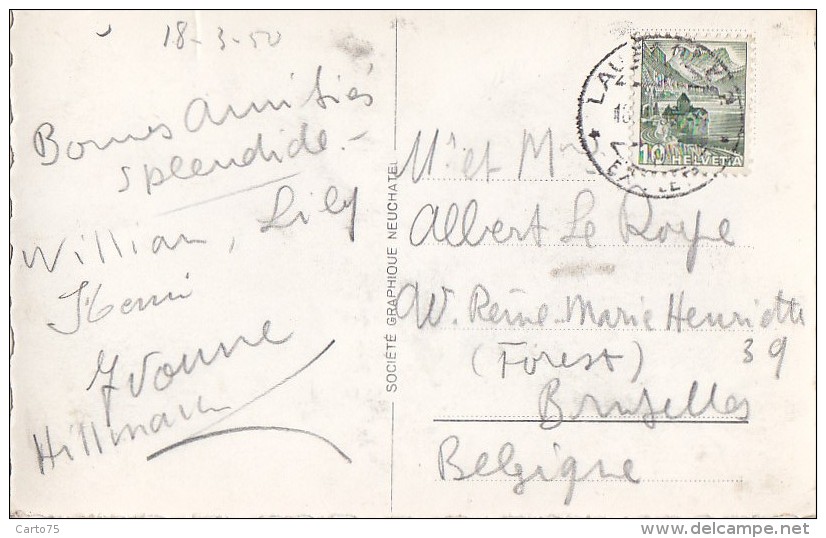 18-3-50
Bonnes Amitiés
splendide.-
William, Lily
Henri
Yvonne
Hillmann
SOCIÉTÉ GRAPHIQUE NEUCHATEL
10 HELVETIA
Mr et Mme
Albert Le Roye
Av. Reine-Marie Henriette
39
(Forest)
Bruxelles
Belgique
Carto75
www.delcampe.net